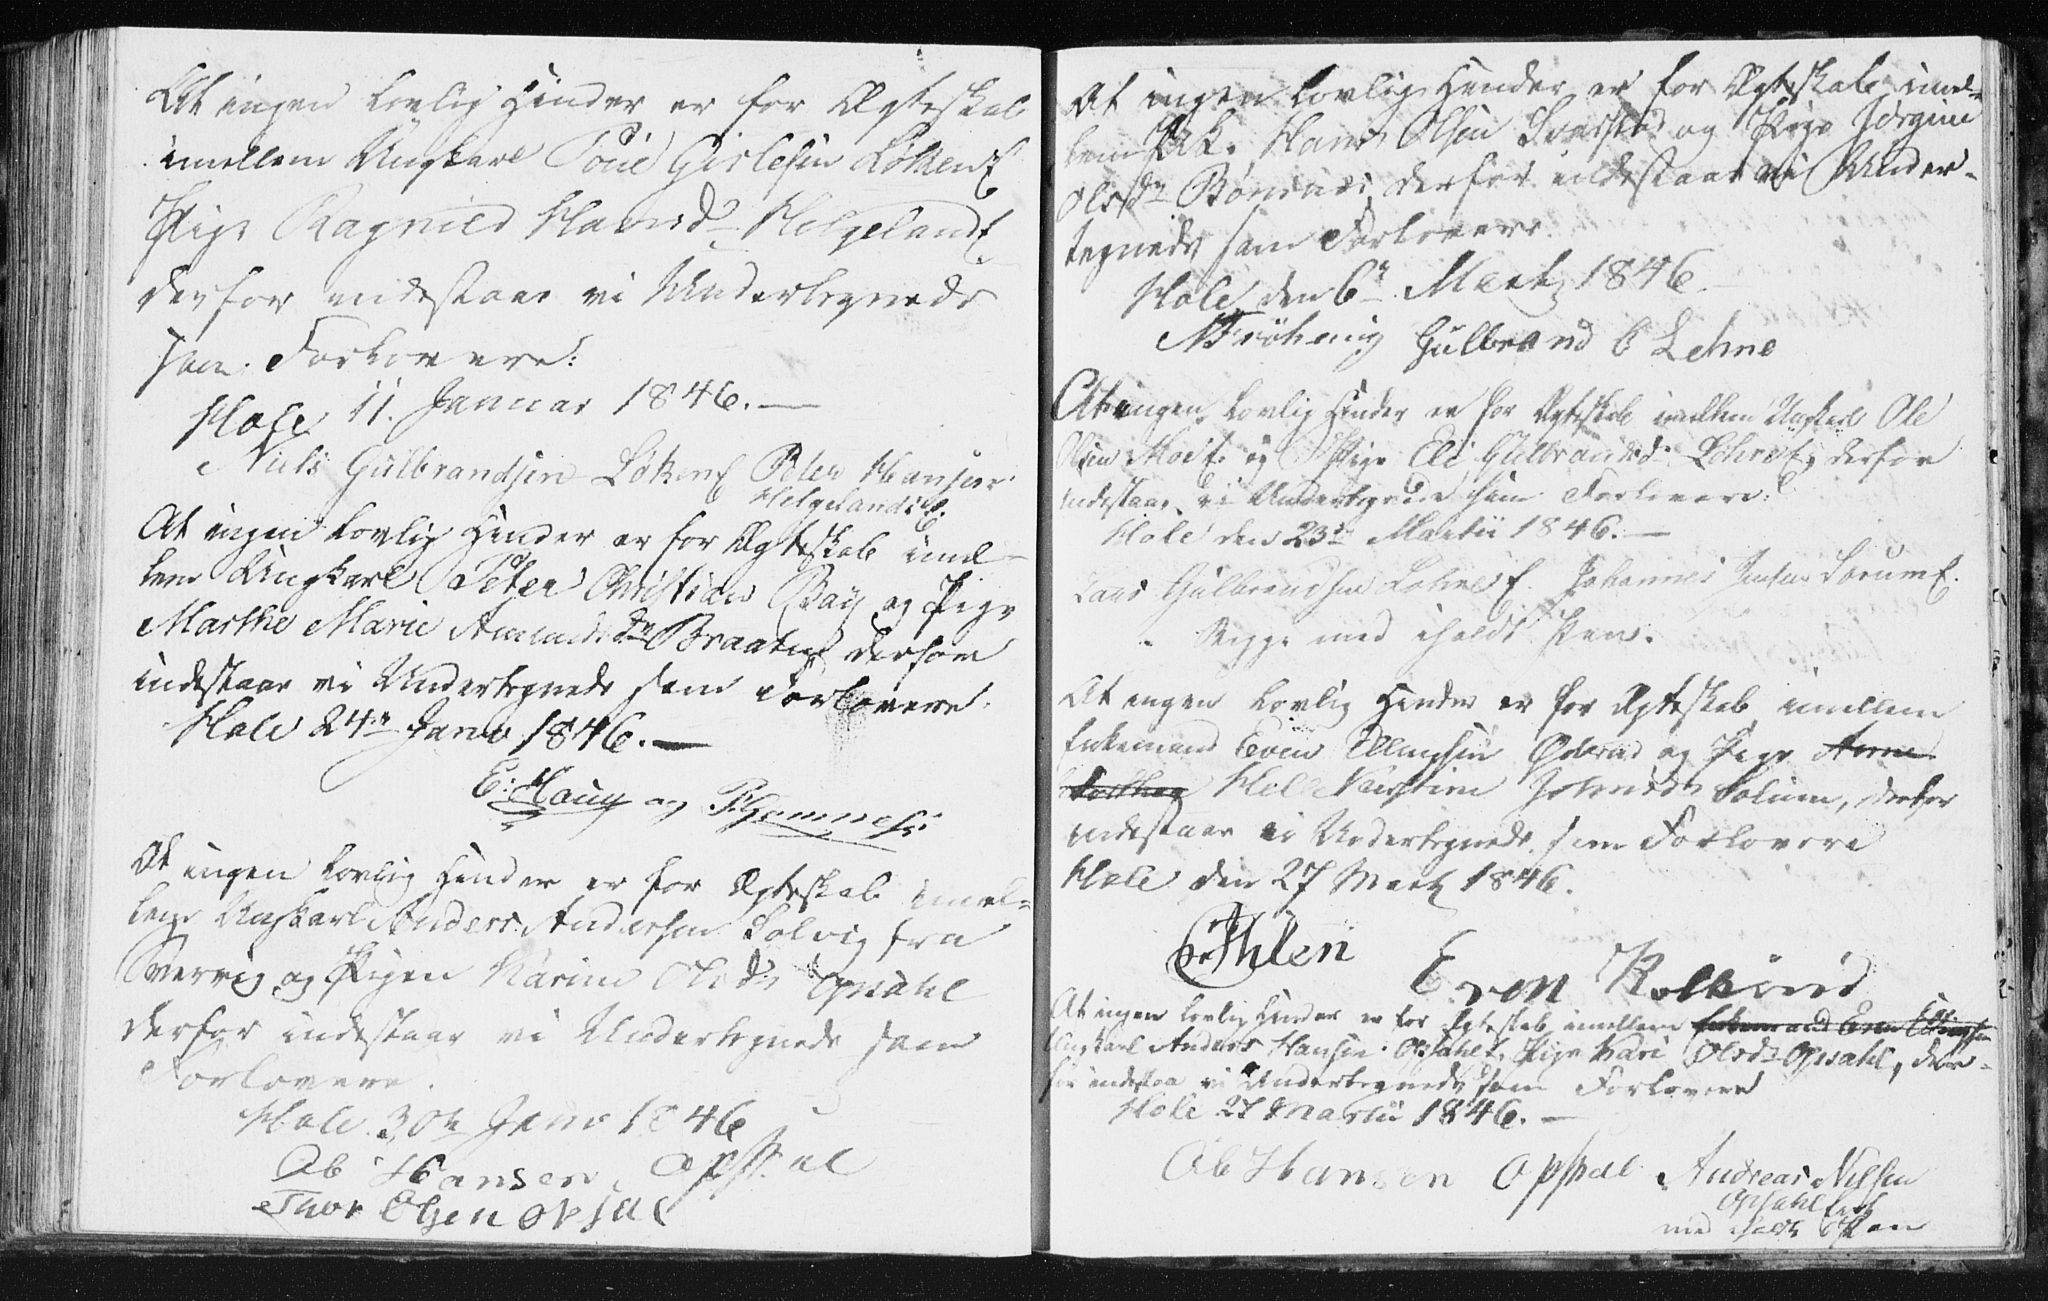 At ingen lovlig Hinder er for Ægteskab
imellem Ungkarl Povel Gislesen Løkenf
Pige Ragnild Hansd Helgelandf
derfor indestaae vi Undertegnede
som Forlovere:
Hole 11. Januar 1846.—
Niels Gulbrandsen Løkenf Peder Hansen
Helgelandsf.
At ingen lovlig Hinder er for Ægteskab imel-
lem Ungkarl Peter Christian Bay og Pige
Marthe Marie Amundsdn Braaten derfor
indestaae vi Undertegnede som Forlovere.
Hole 24n Janv 1846.—
E: Houg og
At ingen lovlig Hinder er for Ægteskab imel=
lem Ungkarl Anders Andersen Solvig fra
og Pigen Karine Olsd Opsahl
derfor indestaar vi Undertegnede som
Forlovere.
Hole 30n Janv 1846
Ob Hansen, Opsal
Thor Olsen Opsal
At ingen lovlig Hinder er for Ægteskab imel=
lem Hans Olsen og Pige Jørgine
Olsdn Bønsnæs derfor indestaar vi Under-
tegnede som Forlovere.
Hole den 6n Martz 1846.
Gulbrand O Lehne
At ingen lovlig Hinder er for Ægteskab imellem Ungkarl Ole
Olsen Moe og Pige Eli Gulbrandsd Lehnef, derfor
indestaae vi Undertegnede som Forlovere:
Hole den 23de Martii 1846.—
Lars Gulbrandsen Lehnesf. Johannes Jensen Sørumf.
Begge med iholdt Pen.
At ingen lovlig Hinder er for Ægteskab imellem
Enkemand Even Ellingsen og Pige Anne
Helle Kirstine Johnsdn Solum, derfor
indestaar vi Undertegnede som Forlovere
Hole den 27 Martz 1846.
Ihlen
Even
At ingen lovlig Hinder er for Ægteskab imellem Enkemand Even Ellingsen
Ungkarl Anders Hansen Opsahlf, Pige Kari Olsd Opsahl, der-
for indestaa vi Undertegnede som Forlovere
Hole 27 Martii 1846.—
Ob Hansen Opsal Andreas Nilsen
Opsahl
med iholdt Pen